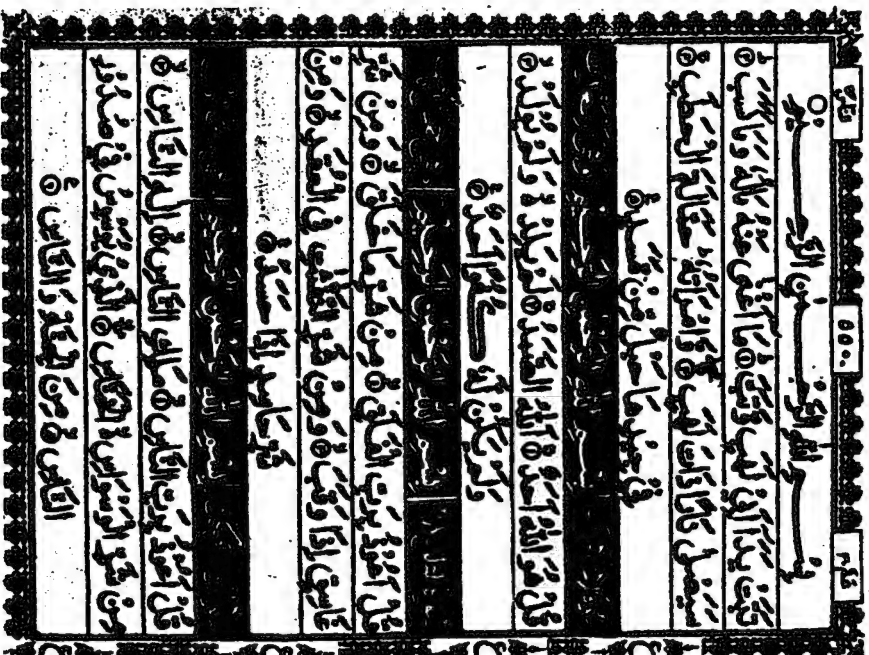 بِسْمِ اللهِ الرَّحْمٰنِ الرَّحِيْمِ
تَبَّتْ يَدَآ اَبِيْ لَهَبٍ وَّتَبَّ ۝ مَآ اَغْنٰى عَنْهُ مَالُهٗ وَمَا كَسَبَ ۝
سَيَصْلٰى نَارًا ذَاتَ لَهَبٍ ۝ وَّامْرَاَتُهٗ حَمَّالَةَ الْحَطَبِ ۝
فِيْ جِيْدِهَا حَبْلٌ مِّنْ مَّسَدٍ ۝
قُلْ هُوَ اللهُ اَحَدٌ ۝ اَللهُ الصَّمَدُ ۝ لَمْ يَلِدْ ۙ وَلَمْ يُوْلَدْ ۝
وَلَمْ يَكُنْ لَّهٗ كُفُوًا اَحَدٌ ۝
قُلْ اَعُوْذُ بِرَبِّ الْفَلَقِ ۝ مِنْ شَرِّ مَا خَلَقَ ۝ وَمِنْ شَرِّ
غَاسِقٍ اِذَا وَقَبَ ۝ وَمِنْ شَرِّ النَّفّٰثٰتِ فِي الْعُقَدِ ۝ وَمِنْ
شَرِّ حَاسِدٍ اِذَا حَسَدَ ۝
قُلْ اَعُوْذُ بِرَبِّ النَّاسِ ۝ مَلِكِ النَّاسِ ۝ اِلٰهِ النَّاسِ ۝
مِنْ شَرِّ الْوَسْوَاسِ ۙ الْخَنَّاسِ ۝ الَّذِيْ يُوَسْوِسُ فِيْ صُدُوْرِ
النَّاسِ ۝ مِنَ الْجِنَّةِ وَالنَّاسِ ۝